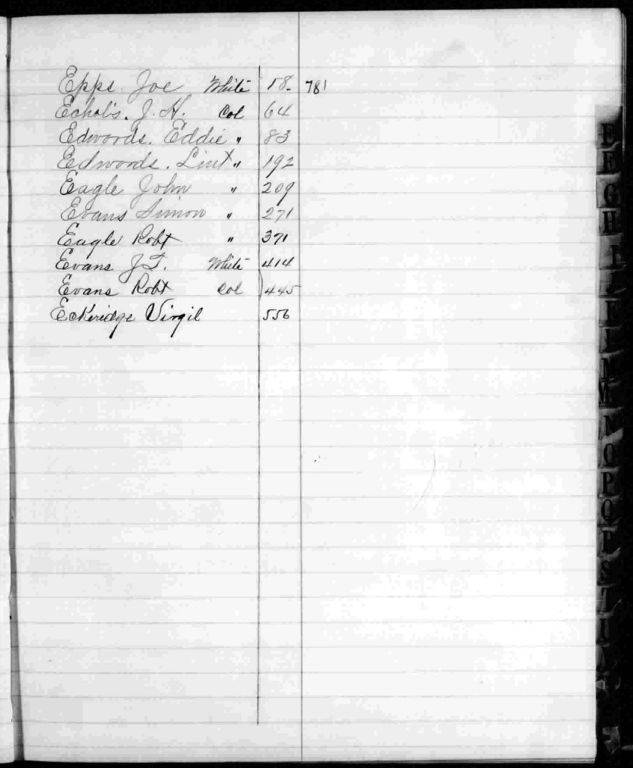 Epps Joe White 18- 781
Echols. J. H. Col 64
Edwords. Eddie " 83
Edwords. Lint " 192
Eagle John " 209
Evans Simon " 271
Eagle Robt " 371
Evans J. T. White 414
Evans Robt Col 445
Eckeridge Virgil 556